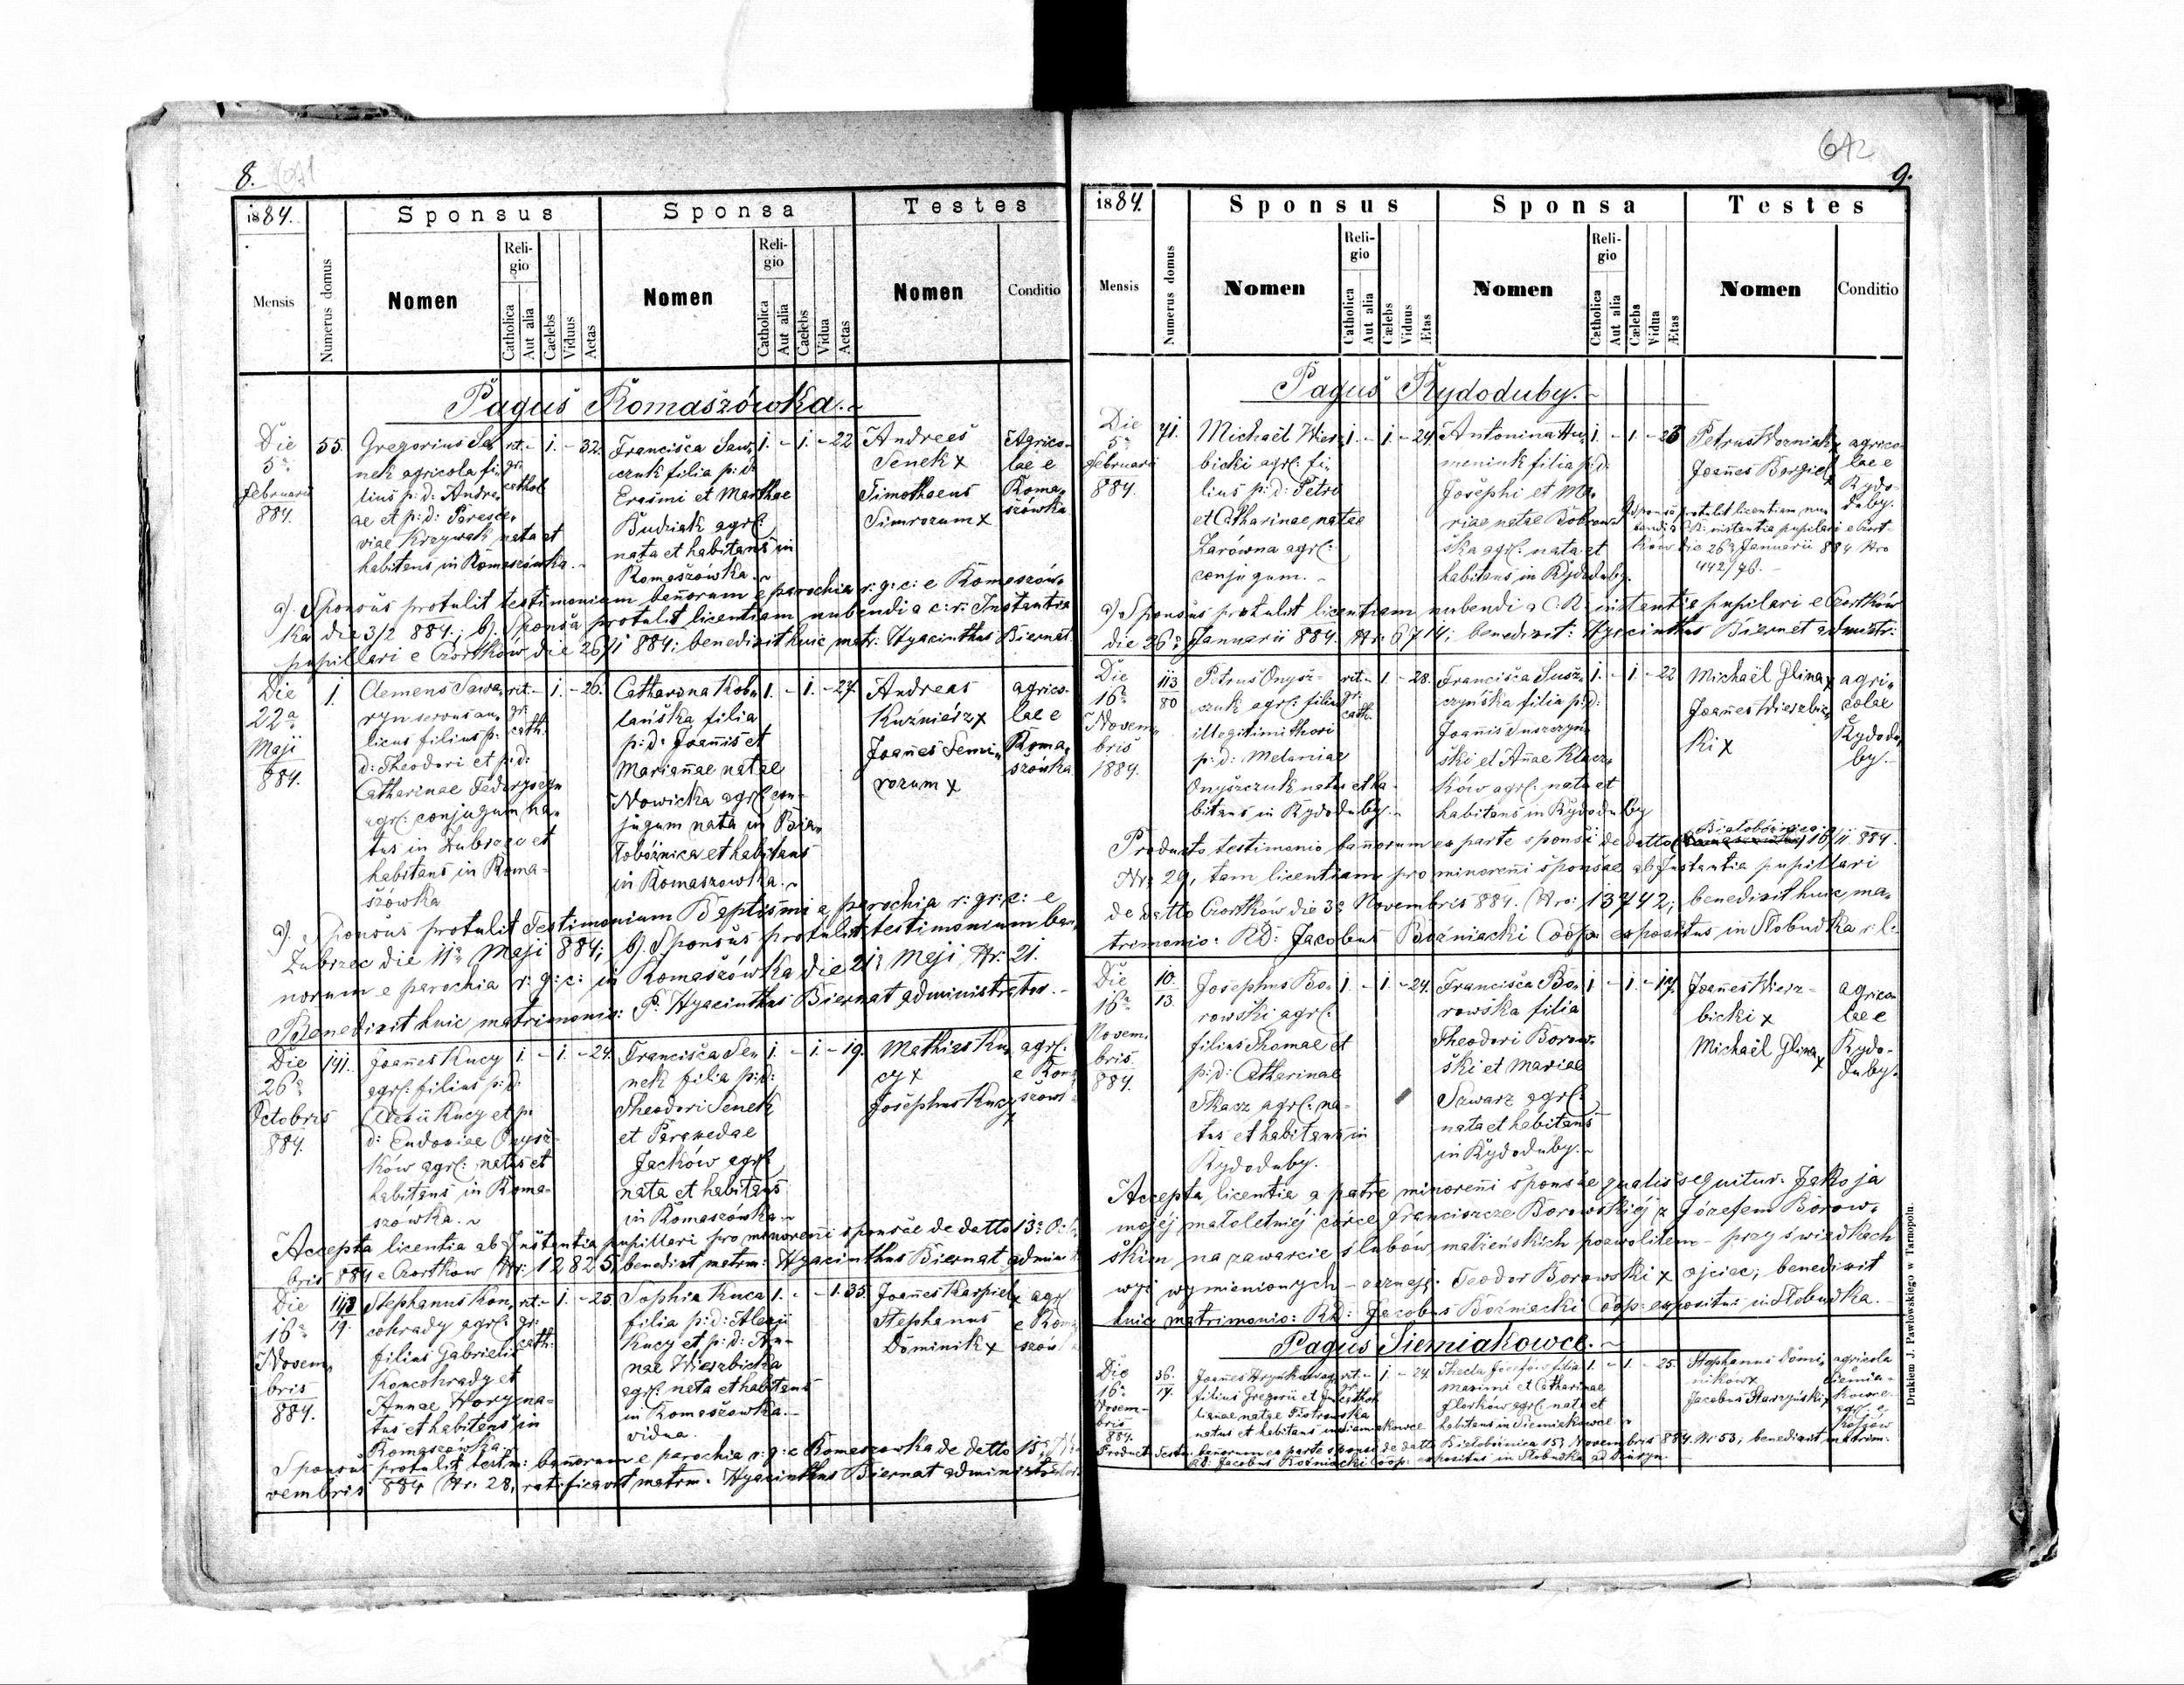 8.
1884.
Sponsus
Sponsa
Testes
Mensis
Numerus domus
Nomen
Religio
Catholica
Aut alia
Caelebs
Viduus
Aetas
Nomen
Religio
Catholica
Aut alia
Caelebs
Vidua
Aetas
Nomen
Conditio
Pagus Romaszówka.
Die
5a
Februarii
884.
55.
Gregorius Se-
nek agricola fi-
lius p: d: Andre-
ae et p: d: Parasce-
viae Krzywak nata et
habitans in Romaszówka.
rit.
gr:
cathol
1. - 32.
Francisca Saw-
czuk filia p: d:
Erasmi et Marthae
Budziak agrl:
nata et habitans in
Romaszówka.
1. - 1. - 22
Andreas
Senek x
Timotheus
Simrozum x
Agrico-
lae e
Roma-
szówka
a). Sponsus protulit testimonium bannorum e parochia r: g: c: e Romaszów-
ka die 3/2 884.; b) Sponsa protulit licentiam nubendi a c: r: Instantia
pupillari e Czortków die 26/1 884; benedixit huic matr: Hyacinthus Biernat.
Die
22a
Maji
884.
1.
Clemens Sawa-
ryn servus au-
licus filius p:
d: Theodori et p: d:
Catharinae
agrl: conjugum na-
tus in Zubrzec et
habitans in Roma-
szówka
rit.
gr:
cath.
1. - 26.
Catharina Kob-
lańska filia
p: d: Joannis et
Mariannae natae
Nowicka agrl: con-
jugum nata in Bia-
łobóżnica et habitans
in Romaszowka.
1. - 1. - 27.
Andreas
Kuźniérz x
Joannes Semi-
rozum x
agrico-
lae e
Roma-
szówka
a). Sponsus protulit Testimonium Baptismi e parochia r: gr: c: e
Zubrzec die 11a Maji 884; b). Sponsus protulit testimonium ban-
norum e parochia r: g: c: in Romaszówka die 21 Maji Nr: 21.
Benedixit huic matrimonio: P. Hyacinthus Biernat administrator.
Die
26a
Octobris
884.
141.
Joannes Kucy
agrl: filius p: d:
Alexii Kucy et p:
d: Eudoxiae Onysz-
ków agrl: natus et
habitans in Roma-
szówka.
1. - 1. - 24.
Francisca Se-
nek filia p: d:
Theodori Senek
et Paraxedae
Jacków agrl:
nata et habitans
in Romaszówka
1. - 1. - 19.
Mathias Ku-
cy x
Josephus Kucy
x
agrl:
e Roma
szówk
Accepta licentia ab Instantia pupillari pro minorenni sponsae de datto 13a Octo
bris 884 e Czortkow Nr: 12825, benedixit matrm: Hyacinthus Biernat admin
Die
16a
Novem-
bris
884.
143
19.
Stephanus Kon-
cohrady agrl:
filius Gabrielis
Koncohrady et
Annae Hory na-
tus et habitans in
Romaszówka.
rit.
gr:
cath:
1. - 25.
Sophia Kuca
filia p: d: Alexii
Kucy et p: d: An-
nae Wierzbicka
agrl: nata et habitans
in Romaszówka.
vidua.
1. - - 1. 35.
Joannes Karpiel x
Stephanus
Dominik x
agr
e Roma
szów
Sponsus protulit testm: bannorum e parochia r: g: c Romaszowka de datto 15 No
vembris 884 Nr: 28, ratificavit matrm. Hyacinthus Biernat administrator
672
9.
1884.
Sponsus
Sponsa
Testes
Mensis
Numerus domus
Nomen
Religio
Catholica
Aut alia
Cælebs
Viduus
Ætas
Nomen
Religio
Catholica
Aut alia
Cælebs
Vidua
Ætas
Nomen
Conditio
Pagus Rydoduby.
Die
5a
Februarii
884.
71.
Michaël Wierz-
bicki agrl: fi-
lius p: d: Petri
et Catharinae natae
Zarówna agrl:
conjugum.
1. - 1. - 24.
Antonina Hu-
meniuk filia p: d:
Josephi et Ma-
riae natae Bobrow-
ska agrl: nata et
habitans in Rydoduby.
1. - 1. - 23
Petrus Wozniak x
Joannes Bargiel x
agrico-
lae e
Rydo-
duby.
b) Sponsa protulit licentiam nu-
bendi a C: R: instantia pupilari e Czort-
ków die 26a Januarii 884 Nro
442/76.
a) Sponsus protulit licentiam nubendi a C: R: instantia pupilari e Czortków
die 26a Januarii 884. Nr: 6714; benedixit: Hyacinthus Biernat admstr:
Die
16a
Novem-
bris
1884.
113
80
Petrus Onysz-
czuk agrl: filius
illegitimi thori
p: d: Melaniae
Onyszczuk natus et ha-
bitans in Rydoduby.
rit.
gr:
cath.
1. - 28.
Francisca Susz-
czyńska filia p: d:
Joannis Suszczyń-
ski et Annae Klacz-
ków agrl: nata et
habitans in Rydoduby
1. - 1. - 22
Michaël Glina x
Joannes Wierzbic-
ki x
agri-
colae
e
Rydodu-
by.
Białobóżnica
Producto testimonio bannorum ex parte sponsi de datto 16/11 884.
Nr: 29, tam licentiam pro minorenni sponsae ab Instantia pupillari
de datto Czortków die 3a Novembris 884. Nro: 13742; benedixit huic ma-
trimonio: RD: Jacobus Boźniacki Coop: expositus in Słobudka r: l:
Die
16a
Novem-
bris
884.
10.
13.
Josephus Bo-
rowski agrl:
filius Thomae et
p: d: Catharinae
Tkacz agrl: na-
tus et habitans in
Rydoduby.
1. - 1. - 24.
Francisca Bo-
rowska filia
Theodori Borow-
ski et Mariae
Szwarz agrl:
nata et habitans
in Rydoduby.
1. - 1. - 17.
Joannes Wierz-
bicki x
Michaël Glina x
agrico-
lae e
Rydo-
duby.
Accepta licentia a patre minorenni sponsae qualis sequitur. Jako ja
mojéj małoletniéj córce Franciszce Borowskiéj z Józefem Borow-
skim na zawarcie ślubów małżeńskich pozwoliłem – przy świadkach
wyż wymienionych – Teodor Borowski x ojciec; benedixit
huic matrimonio: RD: Jacobus Boźniacki Coop: expositus in Słobudka.
Pagus Siemiakowce.
Die
16a
Novem-
bris
884.
36.
17.
Joannes
filius Gregorii et Ju-
lianae natae Piotrowska
natus et habitans in Siemiakowce
rit.
gr:
cathol
1. - 24.
Thecla Józefów filia
Maximi et Catharinae
Florków agrl: nata et
habitans in Siemiakowce
1. - 1. - 25.
Stephanus Domi-
nikow x
Jacobus Starzyński x
agricola
Siemia-
kowce
agr: e
Kosów
Producto Testm: bannorum ex parte sponsi de datto Białobóżnica 15a Novembris 884. Nr: 53; benedixit matrim.
RD: Jacobus Boźniacki Coop: expositus in Słobudka ad
Drukiem J. Pawłowskiego w Tarnopolu.